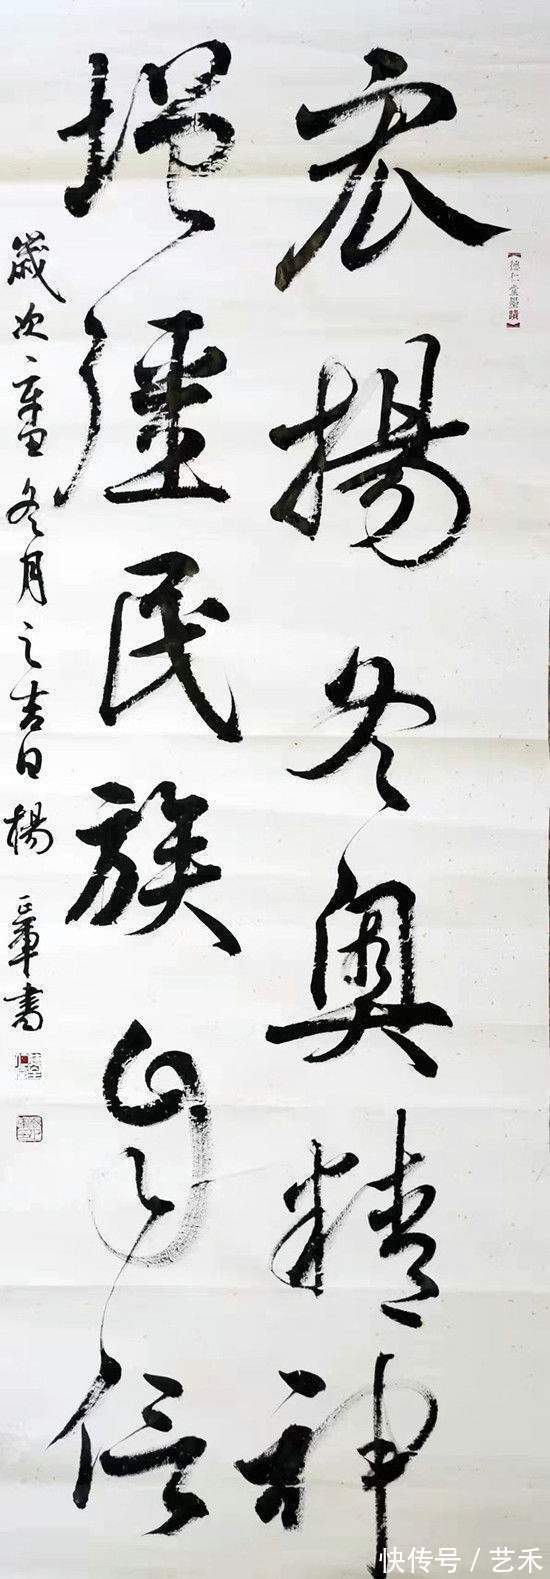 宏揚冬奧精神
【德仁堂墨蹟】
增彊民族自信
歲次辛丑冬月之吉日楊正軍書
快传号 / 艺禾